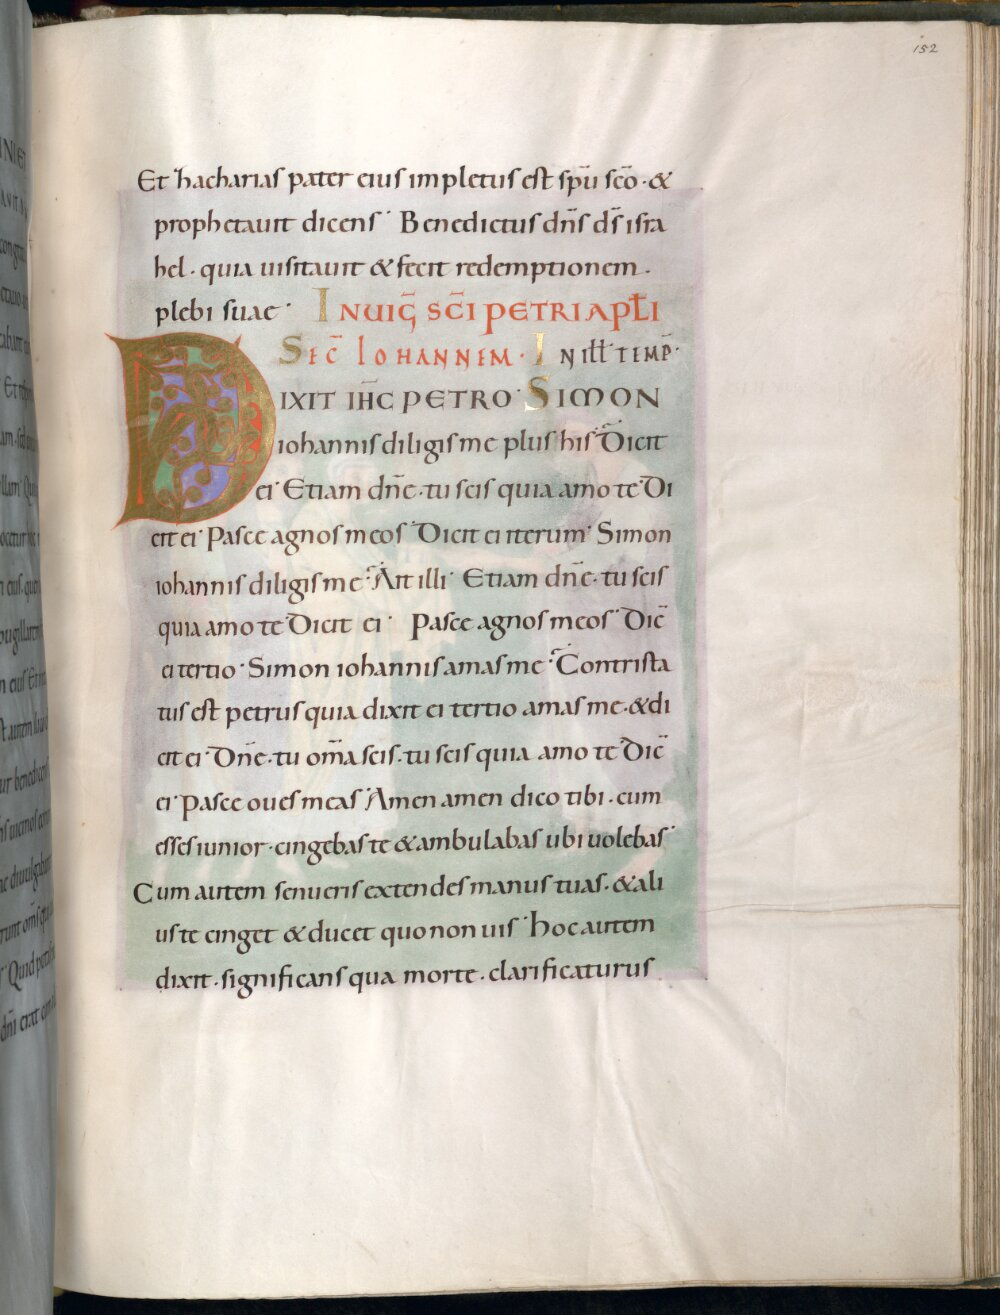 152
Et hacharias pater eius impletus est sp̄u sc̄o · &
prophetauit dicens · Benedictus dn̄s ds̄ isra
hel · quia uisitauit & fecit redemptionem ·
plebi suae · IN UIḠ SC̄I PETRI APŁI
SEC̄ IOHANNEM · IN ILŁ TEMP̄ ·
DIXIT IH̄C PETRO · SIMON
iohannis diligis me plus his · Dicit
ei · Etiam dn̄e · tu scis quia amo te · Di
cit ei · Pasce agnos meos · Dicit ei iterum · Simon
iohannis diligis me · Ait illi · Etiam dn̄e · tu scis
quia amo te · Dicit ei · Pasce agnos meos · Dic̄
ei tertio · Simon iohannis amas me · Contrista
tus est petrus quia dixit ei tertio amas me · & di
cit ei · Dn̄e · tu om̄a scis · tu scis quia amo te · Dic̄
ei · Pasce oues meas · Amen amen dico tibi · cum
esses iunior · cingebas te & ambulabas ubi uolebas ·
Cum autem senueris extendes manus tuas · & ali
us te cinget & ducet quo non uis · hoc autem
dixit · significans qua morte · clarificaturus